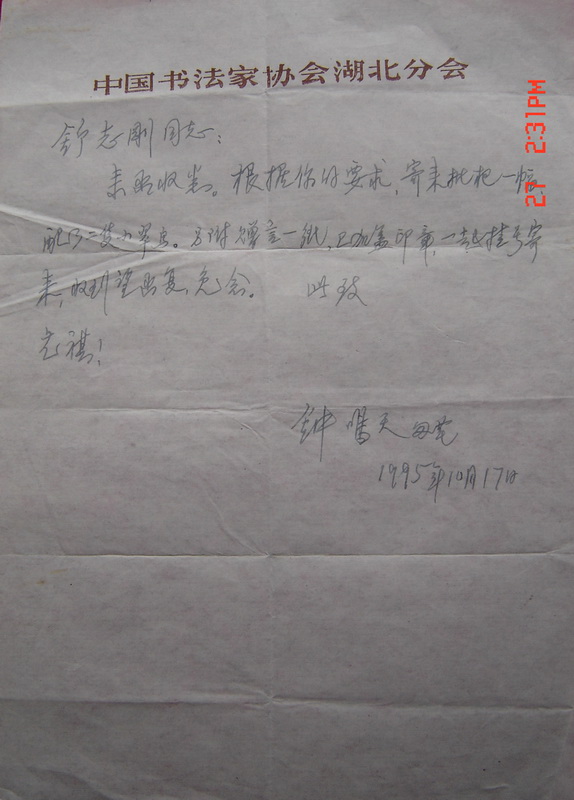 中国书法家协会湖北分会
27 2:31PM
舒志刚同志：
来函收悉。根据你的要求，寄来枇杷一幅，
配了二隻小草虫。另附赠言一纸，上加盖印章，一起挂号寄
来，收到望函复，免念。 此致
艺祺！
钟鸣天
1995年10月17日